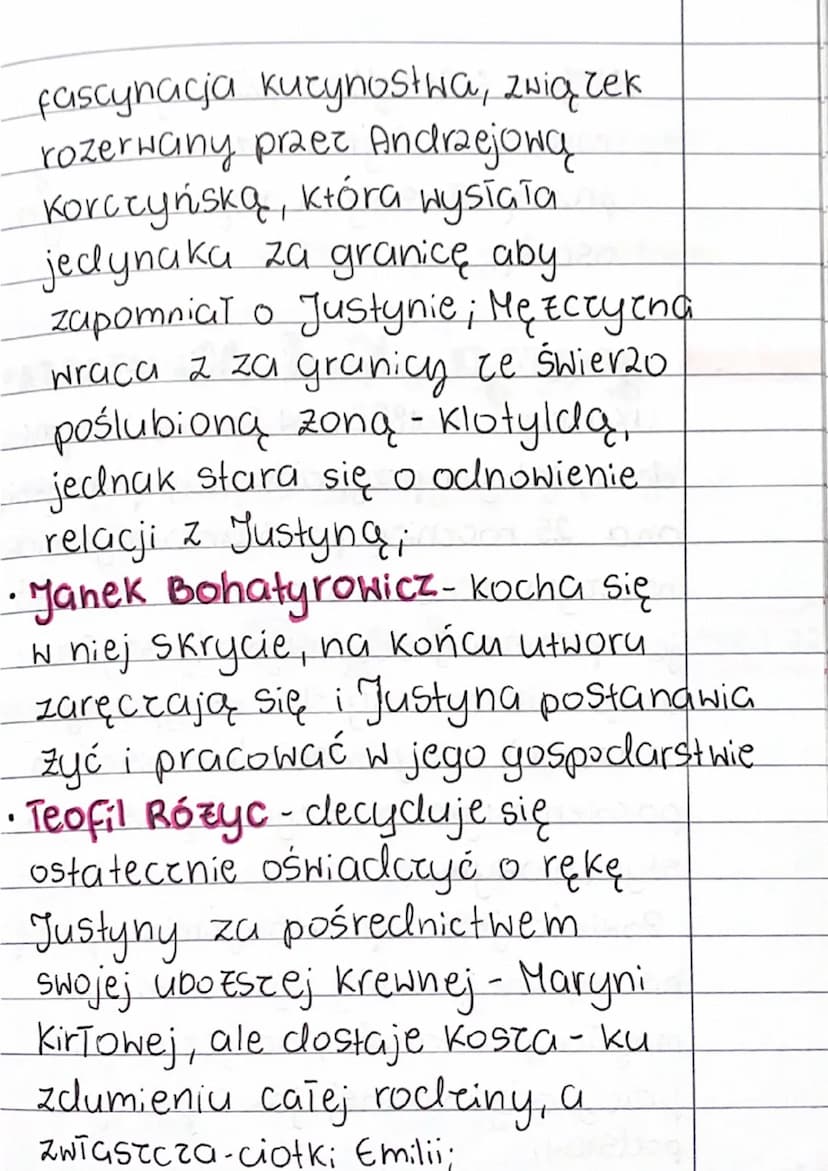 fascynacja kuzynostwa, związek
rozerwany przez Andrzejową
Korczyńską, która wysłała
jedynaka za granicę aby
zapomniał o Justynie; Mężczyzna
wraca z za granicy ze świerzo
poślubioną żoną - Klotyldą,
jednak stara się o odnowienie
relacji z Justyną;
· Janek Bohatyrowicz - kocha się
w niej skrycie, na końcu utworu
zaręczają się i Justyna postanawia
żyć i pracować w jego gospodarstwie
· Teofil Różyc - decyduje się
ostatecznie oświadczyć o rękę
Justyny za pośrednictwem
swojej uboższej krewnej - Maryni
Kirłowej, ale dostaje kosza - ku
zdumieniu całej rodziny, a
zwłaszcza - ciotki Emilii;